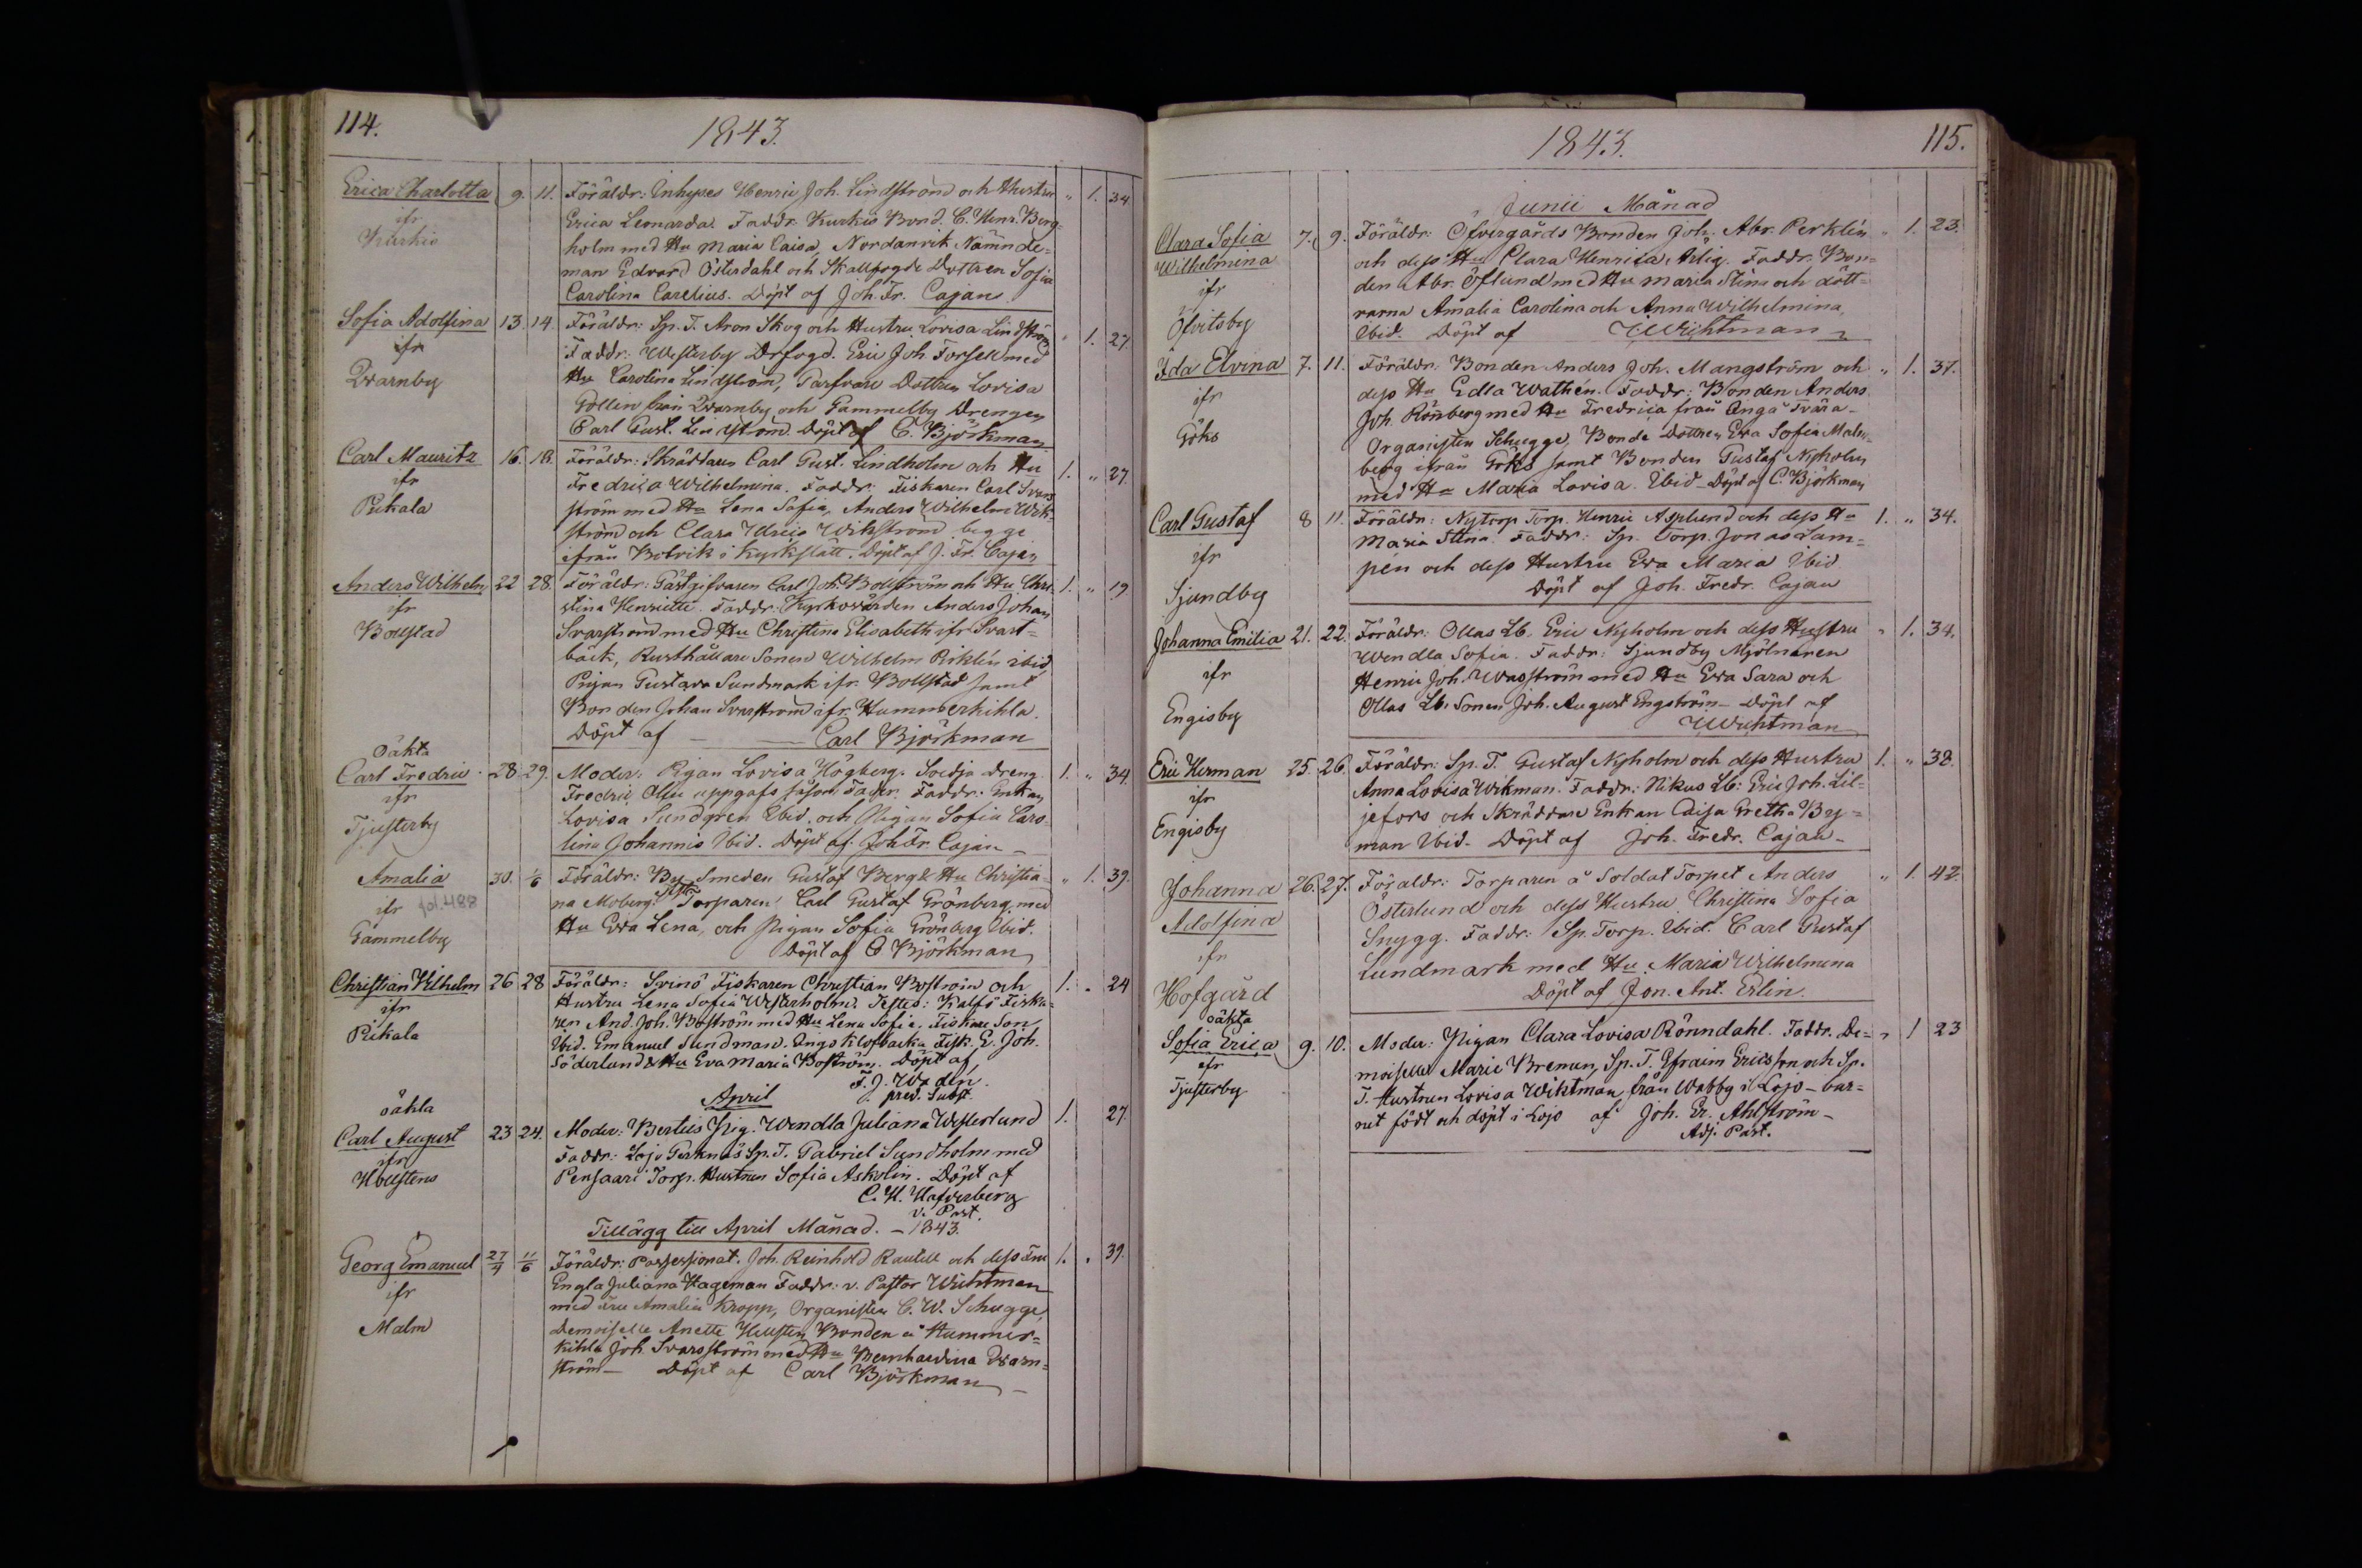 114.
1843.
Erica Charlotta 9. 11. Föräldr: Inhyses Henric Joh. Lindström och Hustru " 1. 34
ifr Erica Leonarda. Faddr. Kurkis Bond. C. Henr. Berg=
Kurkis holm med Hu Maria Caisa, Nordanvik Nämnde=
man Edvard Österdahl och Skallfogde Dottren Sofia
Carolina Carelius. Döpt af Joh. Fr. Cajan
Sofia Adolfina 13. 14. Föräldr: Sp. T. Aron Skog och Hustru Lovisa Lindström " 1. 27
ifr Faddr: Westerby Drfogd. Eric Joh. Forsell med
Qvarnby Hu Carolina Lindström, Garfvare Dottren Lovisa
Gollin från Qvarnby och Gammelby Drengen
Carl Gust. Lindström. Döpt af C. Björkman
Carl Mauritz 16. 18. Föräldr: Skräddaren Carl Gust. Lindholm och Hu 1. " 27
ifr Fredrica Wilhelmina. Faddr: Fiskaren Carl Svars
Pikala ström med Hu Lena Sofia, Anders Wilhelm Wik=
ström och Clara Ulrica Wikström begge
ifrån Bolvik i Kyrkslätt. Döpt af J. Fr. Cajan
Anders Wilhelm 22 28. Föräldr: Gästgifvaren Carl Joh. Bollström och Hu Chri 1. " 19
ifr stina Henriette. Faddr: Kyrkovärden Anders Johan
Bollstad Svarström med Hu Christina Elisabeth ifr Svart=
bäck, Rusthållare Sonen Wilhelm Riklín ibid
Pigan Gustava Sundmark ifr. Bollstad samt
Bonden Johan Svarström ifr. Hummerkihla.
Döpt af — Carl Björkman
Oäkta
Carl Fredric 28 29. Moder: Pigan Lovisa Högberg. Soldja Dreng 1. " 34
ifr Fredric uppgafs såsom Fader. Faddr. Enkan
Tjusterby Lovisa Sundgren Ibid. och Pigan Sofia Caro=
lina Johannis Ibid. Döpt af Joh Fr. Cajan —
Amalia 30. 1/6 Föräldr: By Smeden Gustaf Berg & Hu Christia= " 1. 39.
ifr fol. 488 na Moberg. Torparen Carl Gustaf Grönberg med
Gammelby Hu Eva Lena, och Pigan Sofia Grönberg Ibid.
Döpt af C. Björkman
Christian Wilhelm 26 28 Föräldr: Svinö Fiskaren Christian Boström och 1. " 24
ifr Hustru Lena Sofia Westerholm. Testes: Kalfö Fiska=
Pikala ren And. Joh. Boström med Hu Lena Sofia, Fiskare Son
Ibid. Emanuel Sundman. Ängsklobacka Fisk. E. Joh.
Söderlund & Hu Eva Maria Boström. Döpt af
pred. Subst.
April
oäkta
Carl August 23 24. Moder: Bertils Pig. Wendla Juliana Westerlund 1. 27.
ifr Faddr: Lojo Gerknäs Sp. T. Gabriel Sundholm med
Hollstens Pensaari Torp. Hustrun Sofia Askolin. Döpt af
C. H. Hafverberg
v. Past.
Tillägg till April Månad. — 1843.
Georg Emanuel 27/4 11/6 Föräldr: Possessionat. Joh. Reinhold Rautell och dess Fru 1. " 39.
ifr Engla Juliana Hageman Faddr: v. Pastor Wichtman
Malm med Fru Amalia Kropp, Organisten C. W. Schugge,
Demoiselle Anette Hellsten, Bonden å Hummer=
kihla Joh. Svarsström med Hu Bernhardina Qvarn=
ström— Döpt af Carl Björkman —
1843.
115.
Junii Månad
Clara Sofia 7. 9. Föräldr: Öfvergårds Bonden Joh. Abr. Perklén " 1. 23.
Wilhelmina och dess Hu Clara Henrica Atlig. Faddr. Bon=
ifr den Abr. Öflund med Hu Maria Stina och dött=
Ölvitsby rarna Amalia Carolina och Anna Wilhelmina,
Ibid. Döpt af Wichtman
Ida Elvina 7. 11. Föräldr: Bonden Anders Joh. Mangström och " 1. 37.
ifr dess Hu Edla Wathén. Faddr: Bonden Anders
Göks Joh. Rönnberg med Hu Fredrica från Ånga Tvära—
Organisten Schugge, Bonde Dottren Eva Sofia Malm=
berg ifrån Göks samt Bonden Gustaf Nyholm
med Hu Maria Lovisa Ibid— Döpt af C. Björkman
Carl Gustaf 8 11. Föräldr: Nytorp Torp. Henric Asplund och dess Hu 1. " 34.
ifr Maria Stina. Faddr: Sp. Torp. Jonas Lam=
Sjundby pén och dess Hustru Eva Maria Ibid.
Döpt af Joh. Fredr. Cajan
Johanna Emilia 21. 22. Föräldr: Ollas Lb. Eric Nyholm och dess Hustru " 1. 34.
ifr Wendla Sofia. Faddr: Sjundby Mjölnaren
Engisby Henric Joh. Wasström med Hu Eva Sara och
Ollas Lb. Sonen Joh. August Engström— Döpt af
Wichtman
Eric Herman 25. 26. Föräldr: Sp. T. Gustaf Nyholm och dess Hustru 1. " 38.
ifr Anna Lovisa Wikman. Faddr: Nikus Lb: Eric Joh. Lil=
Engisby jefors och Skräddare Enkan Caisa Gretha By=
man Ibid. Döpt af Joh. Fredr. Cajan—
Johanna 26. 27. Föräldr: Torparen å Soldat Torpet Anders " 1. 42.
Adolfina Österlund och dess Hustru Christina Sofia
ifr Snygg. Faddr: Sp. Torp. Ibid. Carl Gustaf
Hofgård Lundmark med Hu Maria Wilhelmina
Döpt af Jon. Ant. Erlin.
oäkta
Sofia Erica 9. 10. Moder: Pigan Clara Lovisa Rönndahl. Faddr. De= " 1 23
ifr moiselle Marie Bremen, Sp. T. Efraim Ericsson och Sp.
Tjusterby T. Hustrun Lovisa Wiktman från Wabby i Lojo— bar=
net född och döpt i Lojo af Joh. Er. Ahlström—
Adj. Past.